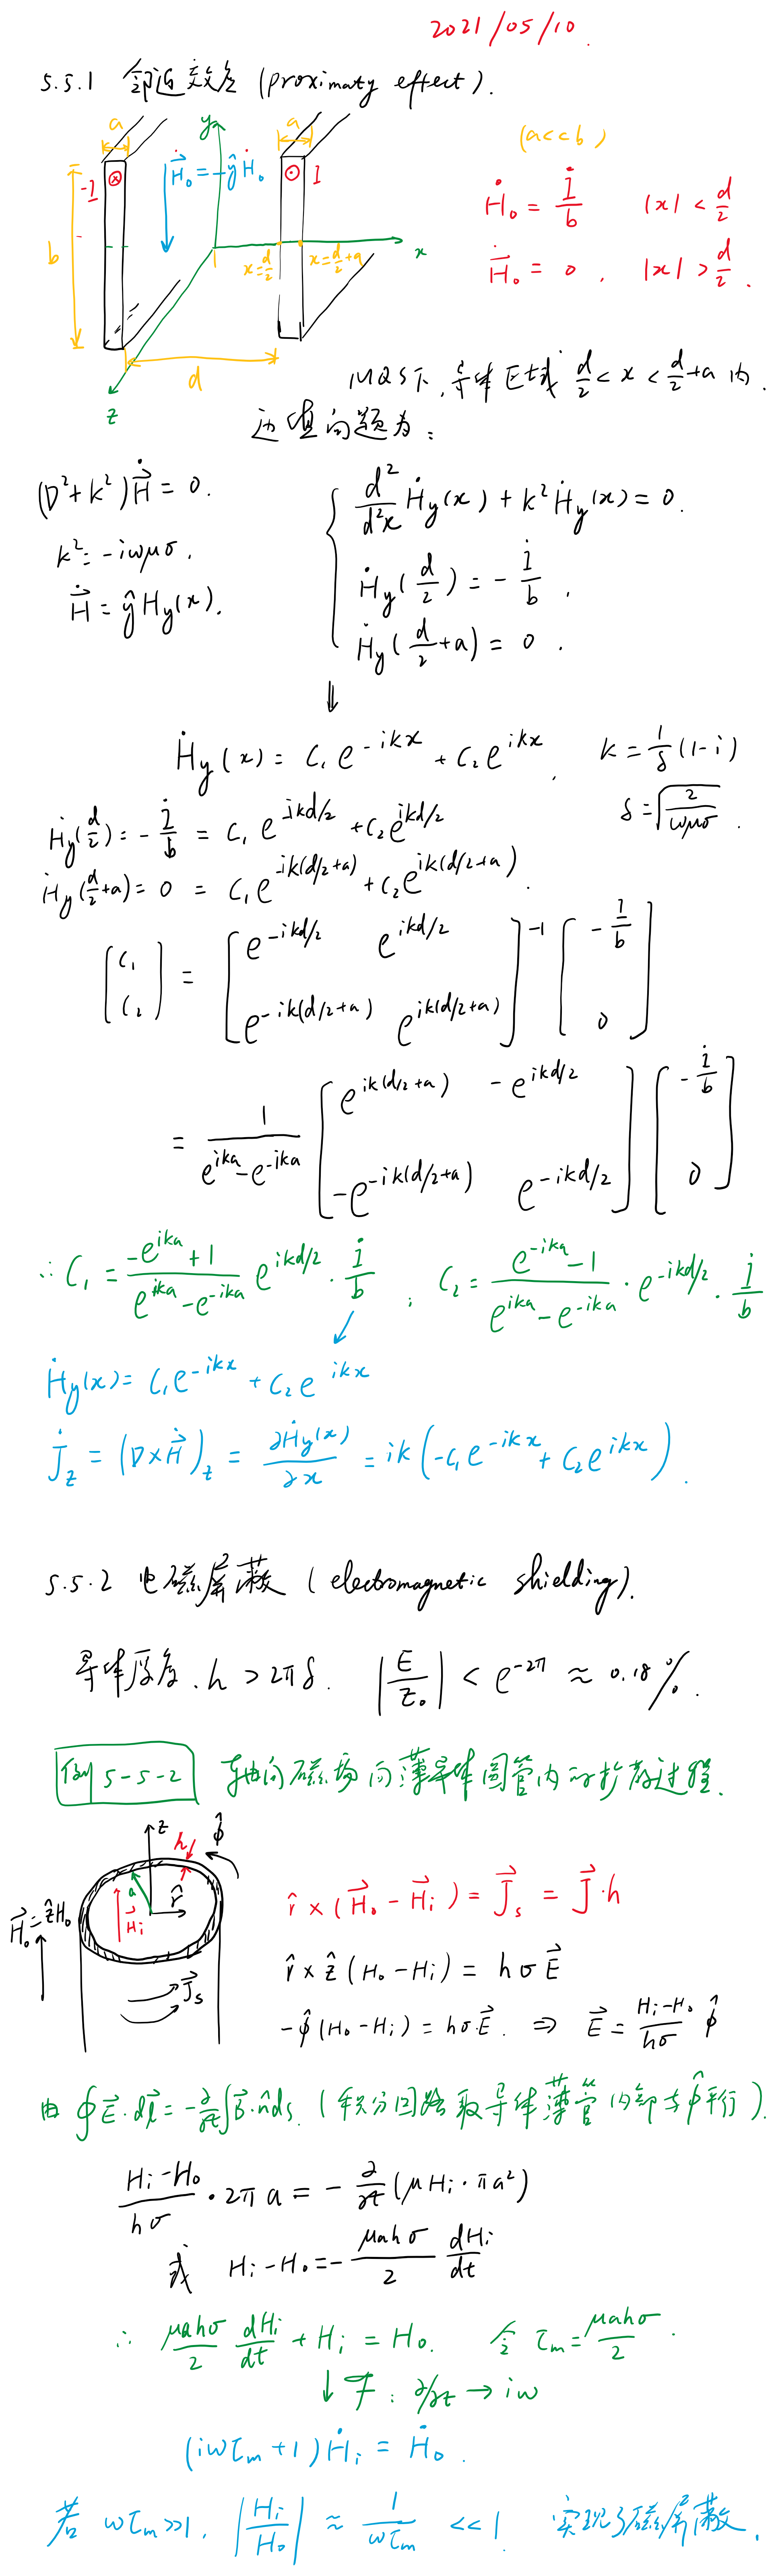 2021/05/10.
5.5.1 邻近效应 (proximaty effect).
a a (a<<b)
y
-I ⊗ \dot{\vec{H}}_0 = -\hat{y}\dot{H}_0 ⊙ I
\dot{H}_0 = \frac{\dot{I}}{b} |x| < \frac{d}{2}
b x=\frac{d}{2} x=\frac{d}{2}+a x
\dot{\vec{H}}_0 = 0 , |x| > \frac{d}{2} .
d
z
MQS下, 导体区域 \frac{d}{2} < x < \frac{d}{2}+a 内.
边值问题为:
(∇²+k²)\dot{\vec{H}} = 0.
k² = -iωμσ.
\dot{\vec{H}} = \hat{y} H_y(x).
\frac{d^2}{d^2x} \dot{H}_y(x) + k² \dot{H}_y(x) = 0.
\dot{H}_y(\frac{d}{2}) = -\frac{\dot{I}}{b} ,
\dot{H}_y(\frac{d}{2}+a) = 0 .
⇓
\dot{H}_y(x) = C_1 e^{-ikx} + C_2 e^{ikx} , k = \frac{1}{δ}(1-i)
δ = \sqrt{\frac{2}{ωμσ}} .
\dot{H}_y(\frac{d}{2}) = -\frac{\dot{I}}{b} = C_1 e^{-ikd/2} + C_2 e^{ikd/2}
\dot{H}_y(\frac{d}{2}+a) = 0 = C_1 e^{-ik(d/2+a)} + C_2 e^{ik(d/2+a)} .
[C_1 ; C_2] = [e^{-ikd/2} e^{ikd/2} ; e^{-ik(d/2+a)} e^{ik(d/2+a)}]^{-1} [-\frac{I}{b} ; 0]
= \frac{1}{e^{ika}-e^{-ika}} [e^{ik(d/2+a)} -e^{ikd/2} ; -e^{-ik(d/2+a)} e^{-ikd/2}] [-\frac{\dot{I}}{b} ; 0]
∴ C_1 = \frac{-e^{ika}+1}{e^{ika}-e^{-ika}} e^{ikd/2} · \frac{\dot{I}}{b} , C_2 = \frac{e^{-ika}-1}{e^{ika}-e^{-ika}} · e^{-ikd/2} · \frac{\dot{I}}{b}
\dot{H}_y(x) = C_1 e^{-ikx} + C_2 e^{ikx}
\dot{J}_z = (∇×\dot{\vec{H}})_z = \frac{∂\dot{H}_y(x)}{∂x} = ik(-C_1 e^{-ikx} + C_2 e^{ikx}) .
5.5.2 电磁屏蔽 (electromagnetic shielding).
导体厚度. h > 2πδ. |\frac{E}{Z_0}| < e^{-2π} ≈ 0.18%.
例 5-5-2 轴向磁场向薄导体圆管内的扩散过程.
z h \hat{φ}
a \hat{r}
\vec{H}_0=\hat{z}H_0 \vec{H}_i
\vec{J}_s
\hat{r} × (\vec{H}_0 - \vec{H}_i) = \vec{J}_s = \vec{J}·h
\hat{r} × \hat{z} (H_0 - H_i) = hσ\vec{E}
-\hat{φ}(H_0 - H_i) = hσ\vec{E}. ⇒ \vec{E} = \frac{H_i-H_0}{hσ} \hat{φ}
由 ∮\vec{E}·d\vec{l} = -\frac{∂}{∂t}∫\vec{B}·\hat{n}ds. (积分回路取导体薄管内部与\hat{φ}平行).
\frac{H_i-H_0}{hσ} · 2πa = -\frac{∂}{∂t}(μH_i · πa²)
或 H_i-H_0 = -\frac{μahσ}{2} \frac{dH_i}{dt}
∴ \frac{μahσ}{2} \frac{dH_i}{dt} + H_i = H_0. 令 τ_m = \frac{μahσ}{2} .
↓ℱ: ∂/∂t → iω
(iωτ_m+1)\dot{H}_i = \dot{H}_0 .
若 ωτ_m>>1, |\frac{H_i}{H_0}| ≈ \frac{1}{ωτ_m} << 1 实现了磁屏蔽.